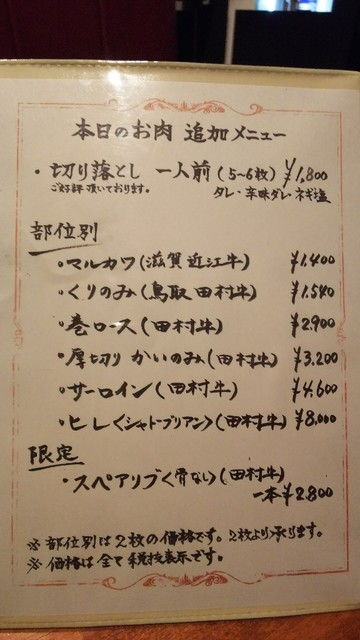 本日のお肉 追加メニュー
・切り落とし 一人前(5~6枚) ¥1,800
ご好評頂いております。 タレ・辛味ダレ・ネギ塩
部位別
・マルカワ(滋賀 近江牛) ¥1,400
・くりのみ(鳥取 田村牛) ¥1,540
・巻ロース(田村牛) ¥2,900
・厚切り かいのみ(田村牛) ¥3,200
・サーロイン(田村牛) ¥4,600
・ヒレ〈シャトーブリアン〉(田村牛) ¥8,000
限定
・スペアリブ〈骨なし〉(田村牛)
一本 ¥2,800
※部位別は2枚の価格です。2枚より承ります。
※価格は全て税抜表示です。